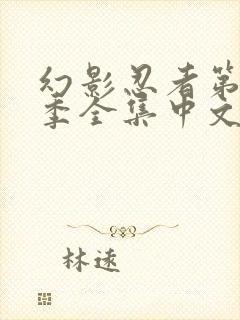 幻影忍者第
季全集中文
林遠